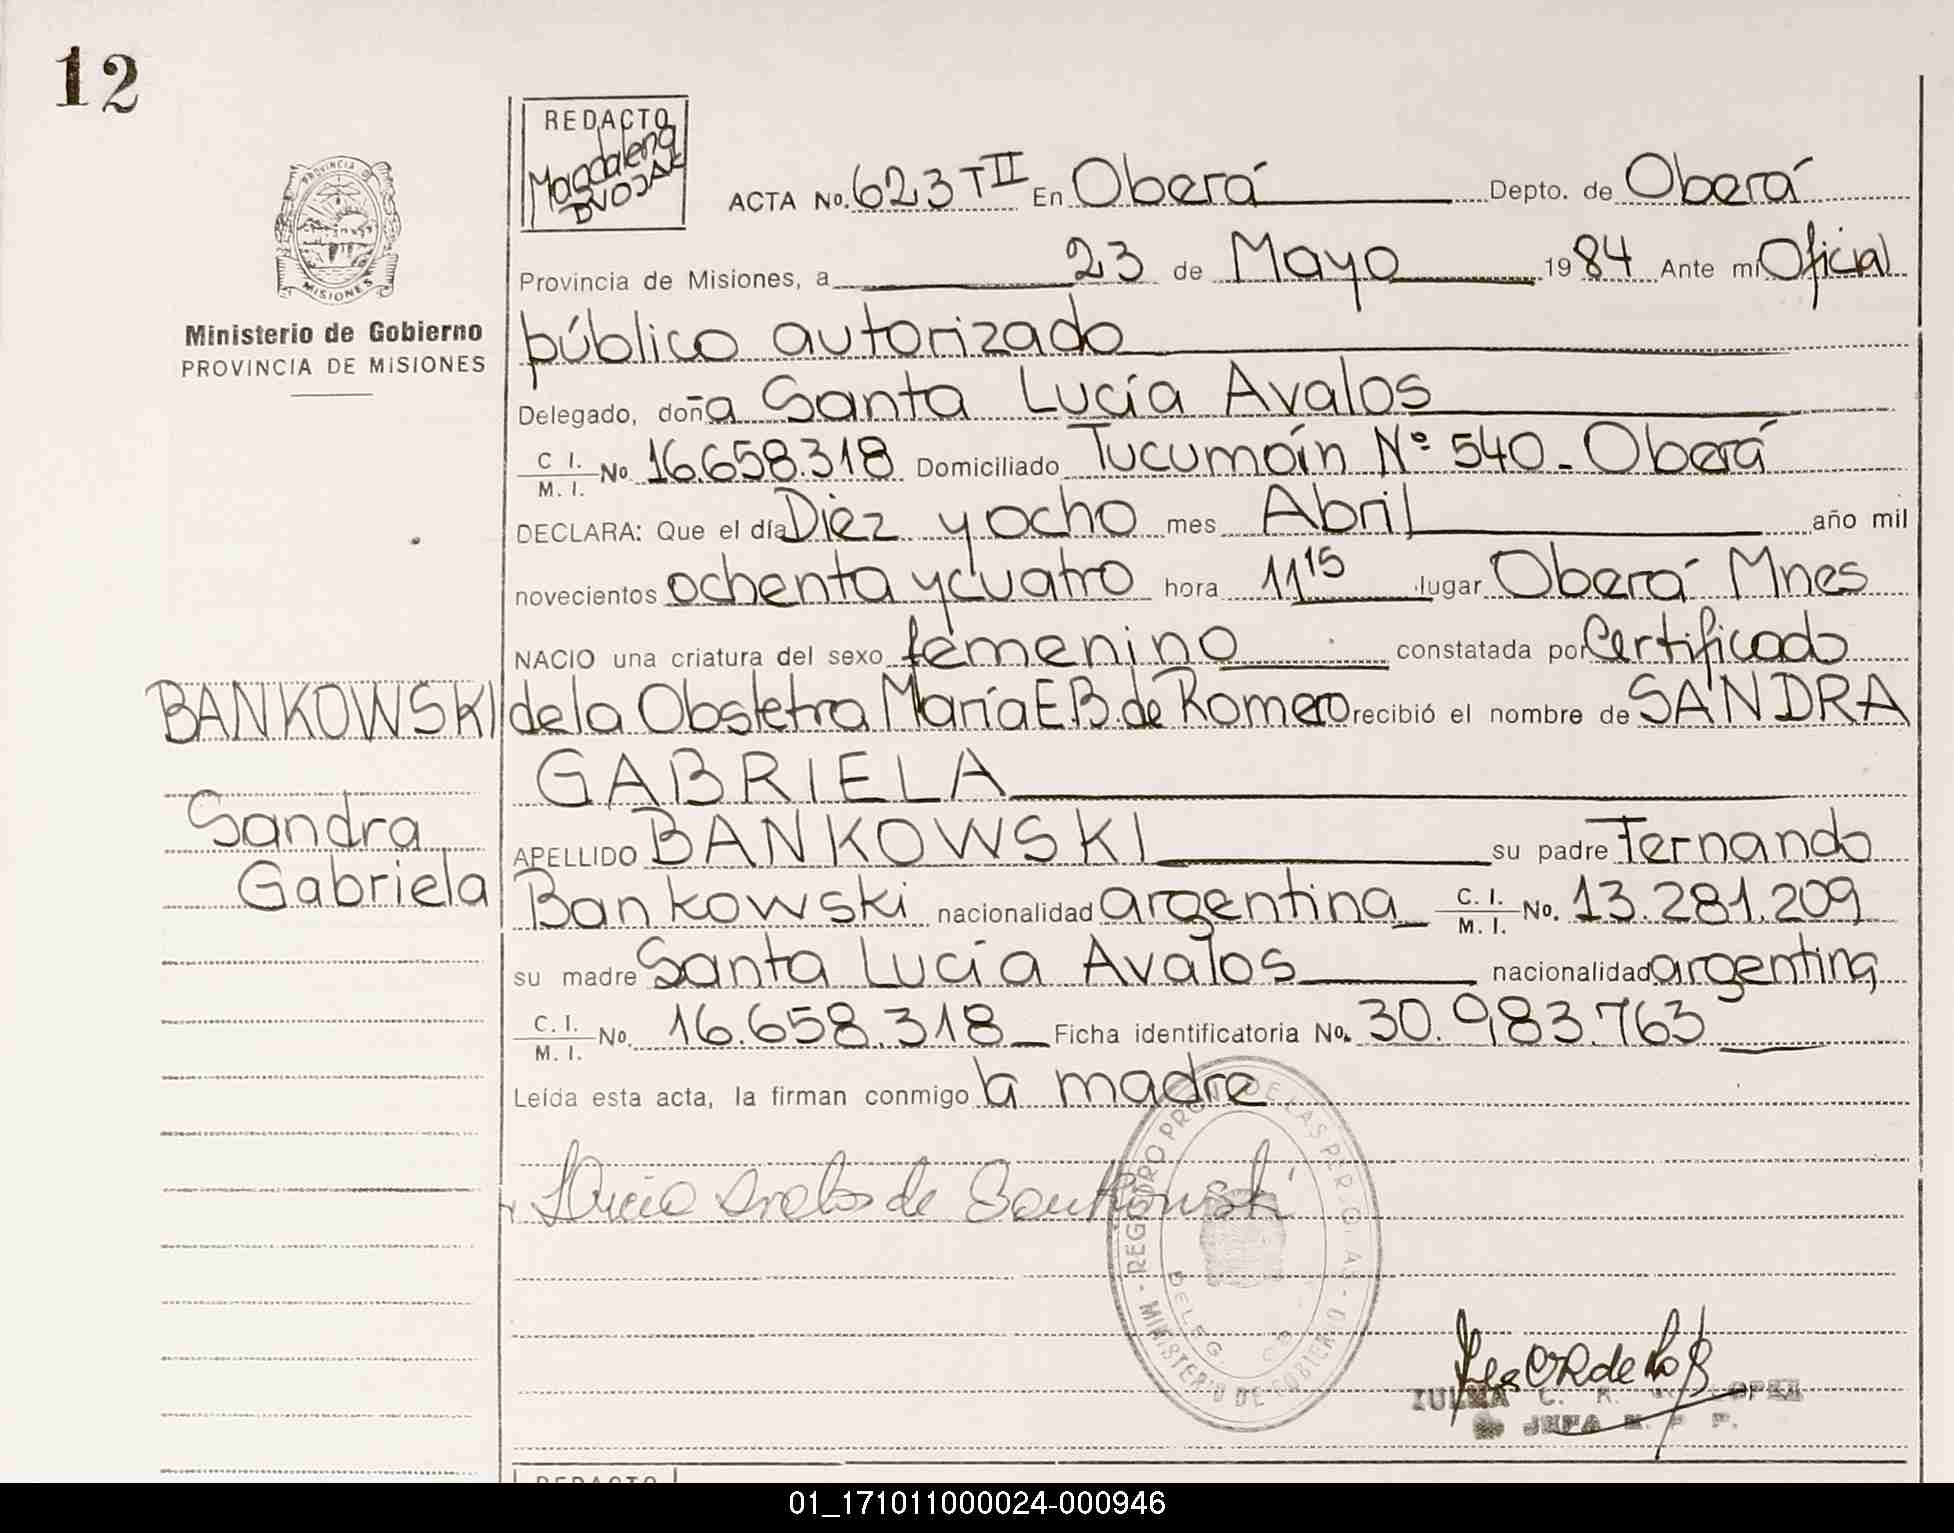 12
REDACTO
Magdalena
BVOJAK
ACTA No. 623 TII En Oberá Depto. de Oberá
Provincia de Misiones, a 23 de Mayo 1984 Ante mí Oficial
público autorizado
Delegado, doña Santa Lucía Avalos
C I.
M. I. No. 16.658.318 Domiciliado Tucumaín Nº 540 - Oberá
DECLARA: Que el día Diez y ocho mes Abril año mil
novecientos ochenta y cuatro hora 11 15 lugar Oberá Mnes
NACIO una criatura del sexo femenino constatada por Certificado
de la Obstetra María E.B. de Romero recibió el nombre de SANDRA
GABRIELA
APELLIDO BANKOWSKI su padre Fernando
Bankowski nacionalidad argentina C. I.
M. I. No. 13.281.209
su madre Santa Lucía Avalos nacionalidad argentina
C. I.
M. I. No. 16.658.318 Ficha identificatoria No. 30.983.763
Leída esta acta, la firman conmigo la madre
Lucia Avalos de Bankowski
PROVINCIA DE
MISIONES
Ministerio de Gobierno
PROVINCIA DE MISIONES
BANKOWSKI
Sandra
Gabriela
MINISTERIO DE GOBIERNO
DELEG.
ZULMA C. R. LOPEZ
JEFA
REDACTO
01_171011000024-000946